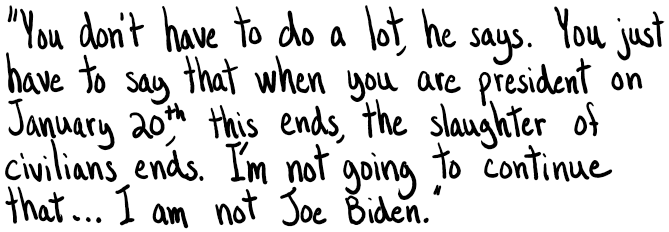 "You don't have to do a lot, he says. You just
have to say that when you are president on
January 20th, this ends, the slaughter of
civilians ends. I'm not going to continue
that... I am not Joe Biden."